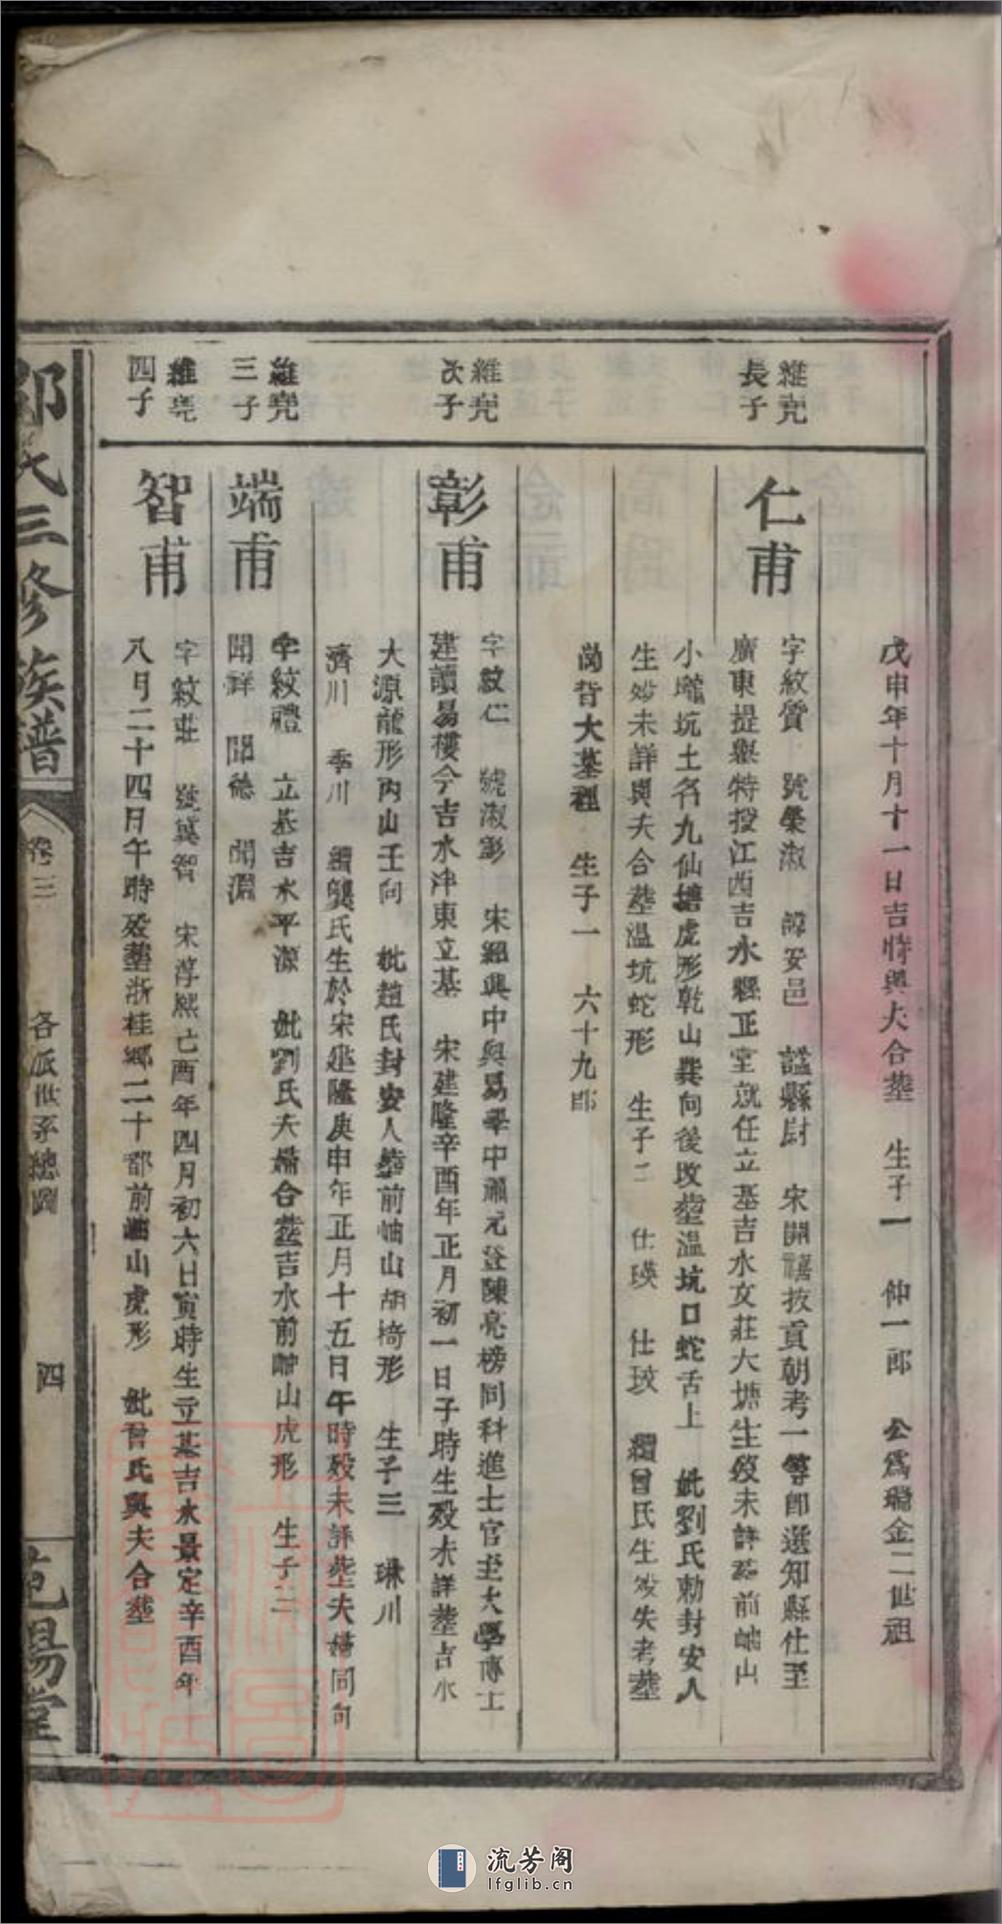 戊申年十月十一日吉時與夫合塟 生子一 仲一郎 公為 金二世祖
維堯
長子
仁甫
字紋質 號榮淑 諱安邑 諡縣尉 宋開禧拔貢朝考一等即選知縣仕至
廣東提舉特授江西吉水縣正堂就任立基吉水文莊大塘生歿未詳塟前岫山
小壠坑土名九仙塘虎形乾山巽向後改塟溫坑口蛇舌上 妣劉氏勅封安人
生歿未詳與夫合塟溫坑蛇形 生子二 仕瑛 仕玟 續曾氏生歿失考塟
崗背大墓裡 生子一 六十九郎
維堯
次子
彰甫
字紋仁 號淑彭 宋紹興中與易 中 元登陳亮榜同科進士官至大學博士
建讀易樓今吉水泮東立基 宋建隆辛酉年正月初一日子時生歿未詳塟吉水
大源龍形丙山壬向 妣趙氏封安人塟前岫山胡椅形 生子三 琳川
濟川 季川 續龔氏生於宋建隆庚申年正月十五日午時歿未詳塟夫婦同向
維堯
三子
端甫
字紋禮 立基吉水平源 妣劉氏夫婦合塟吉水前岫山虎形 生子三
聞祥 聞德 聞淵
維堯
四子
智甫
字紋莊 號冀智 宋淳熙亡酉年四月初六日寅時生立基吉水景定辛酉年
八月二十四日午時歿塟浙桂鄉二十都前岫山虎形 妣曾氏與夫合塟
鄒氏三修族譜
卷三
各派世系總圖
四
范陽堂
流芳阁
lfglib.cn